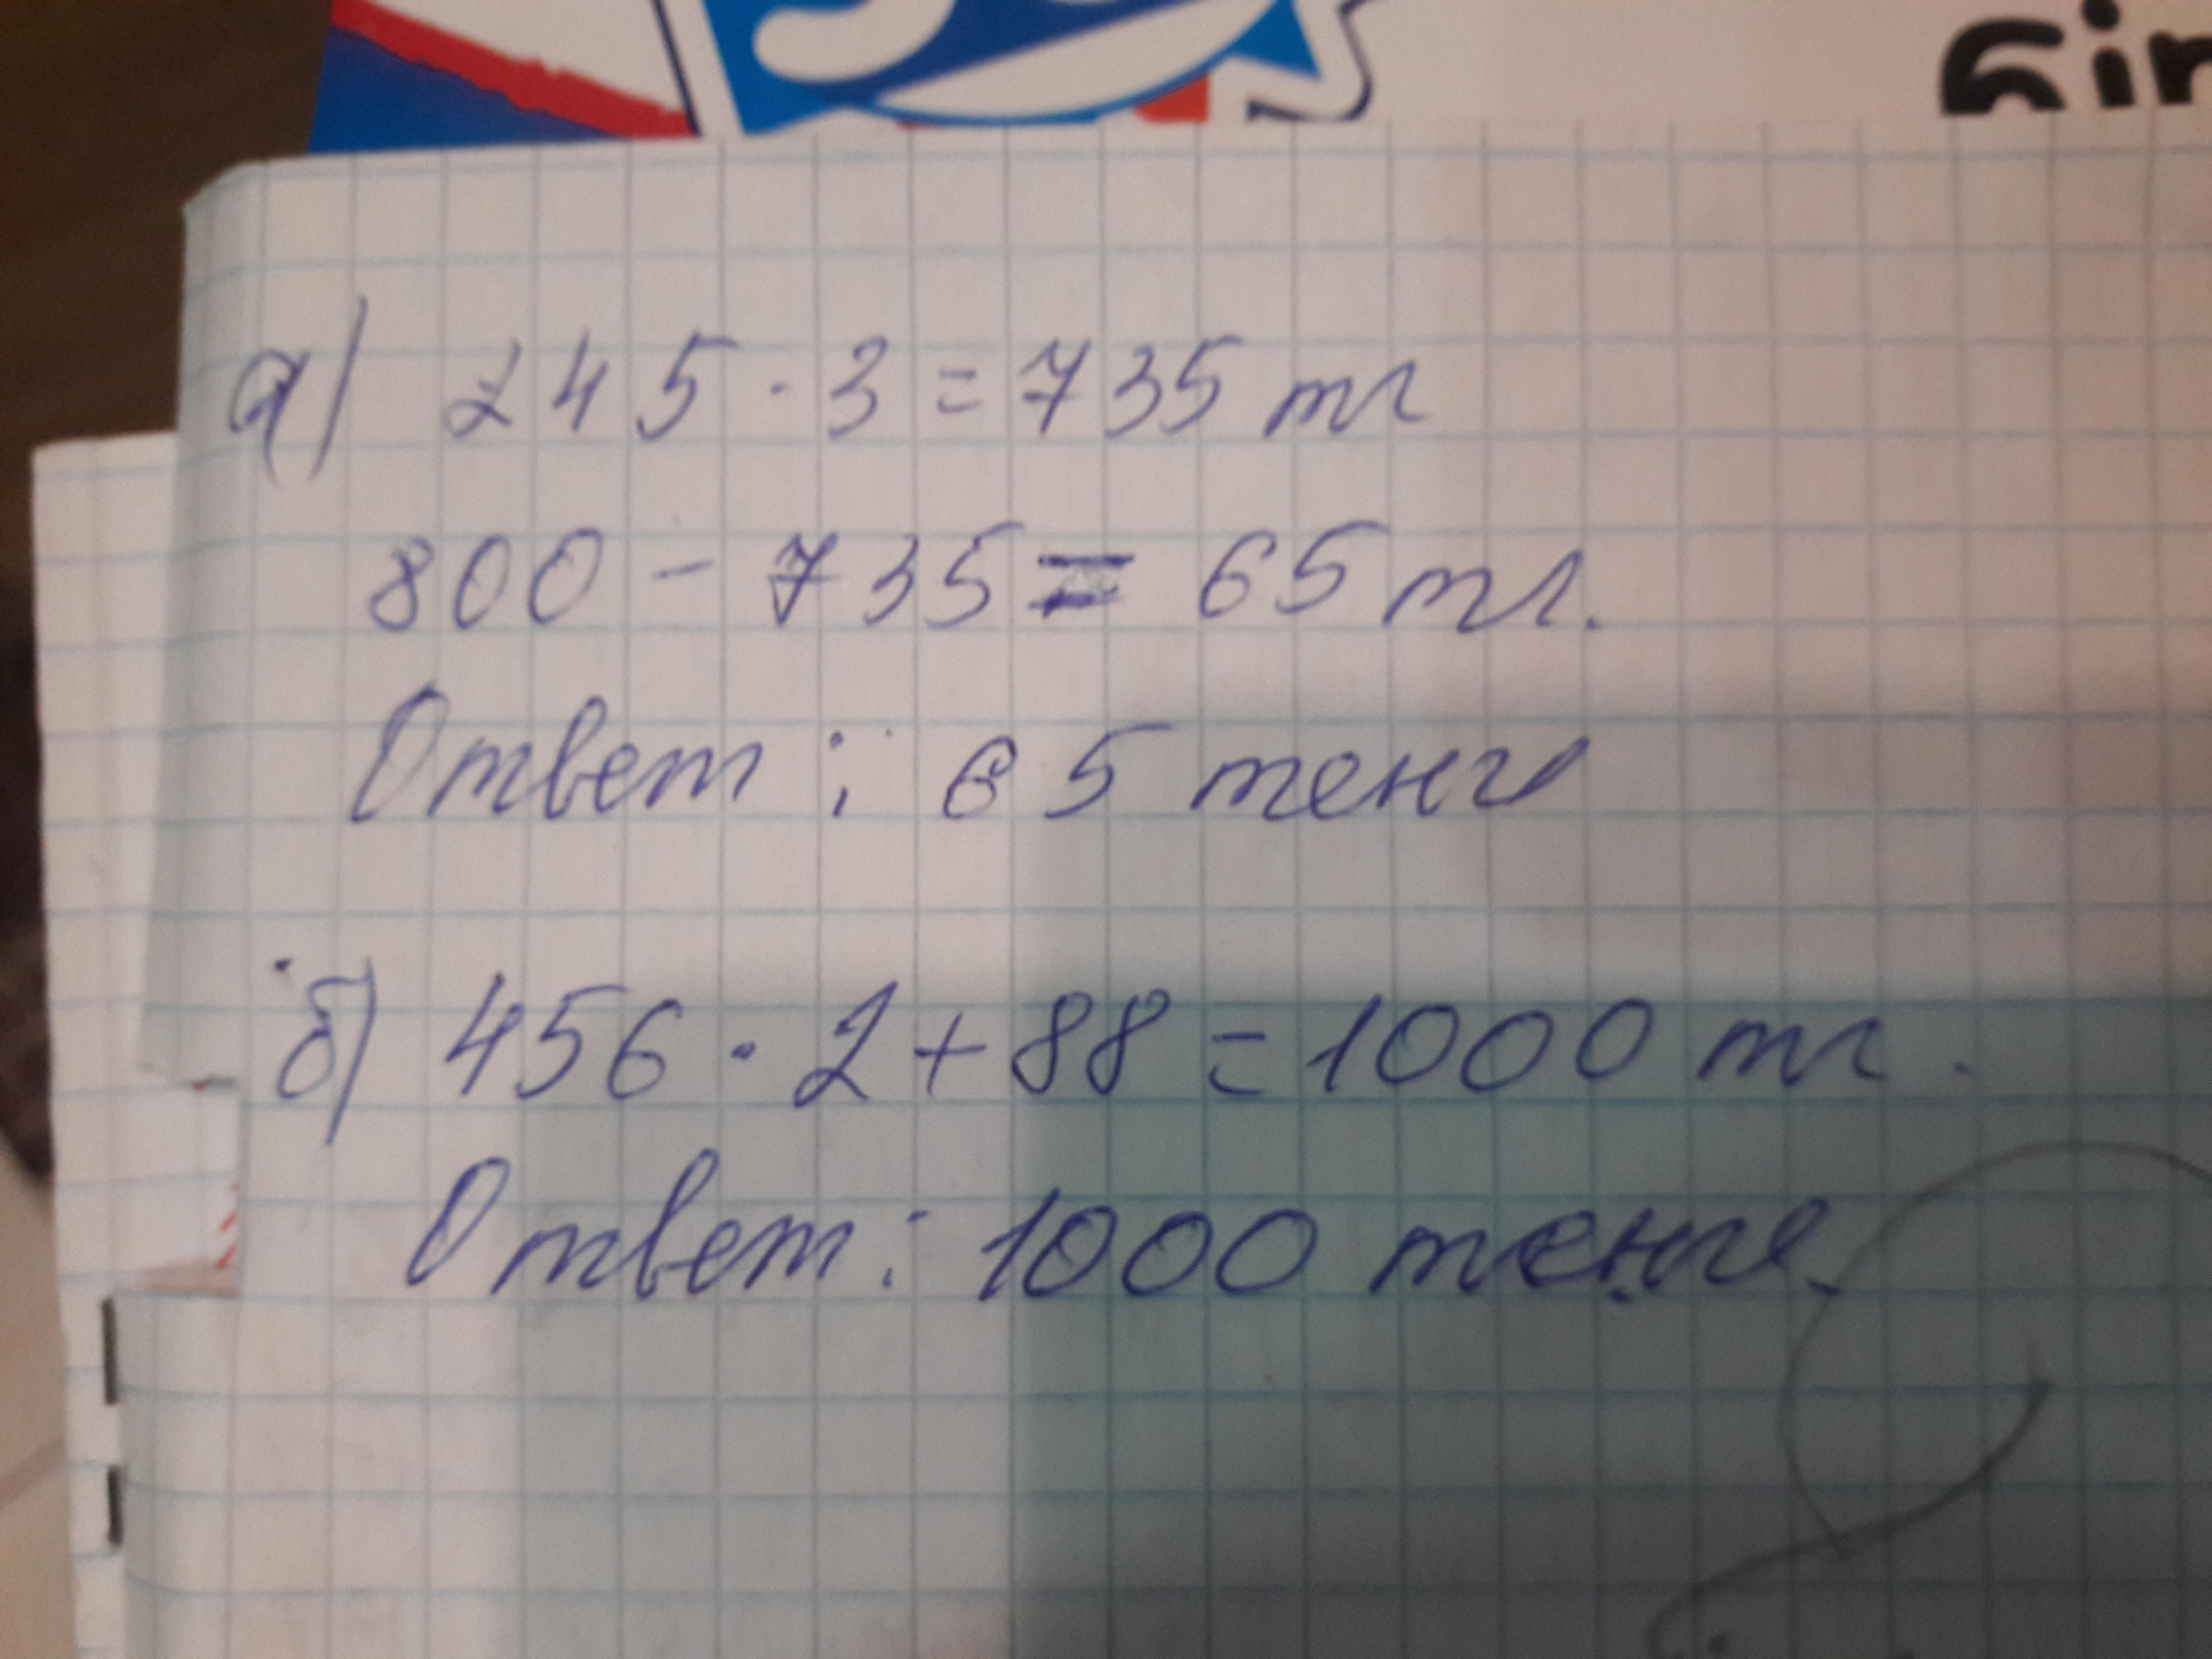 бір
а) 245 · 3 = 735 тг
800 - 735 = 65 тг.
Ответ: 65 тенге
б) 456 · 2 + 88 = 1000 тг.
Ответ: 1000 тенге.